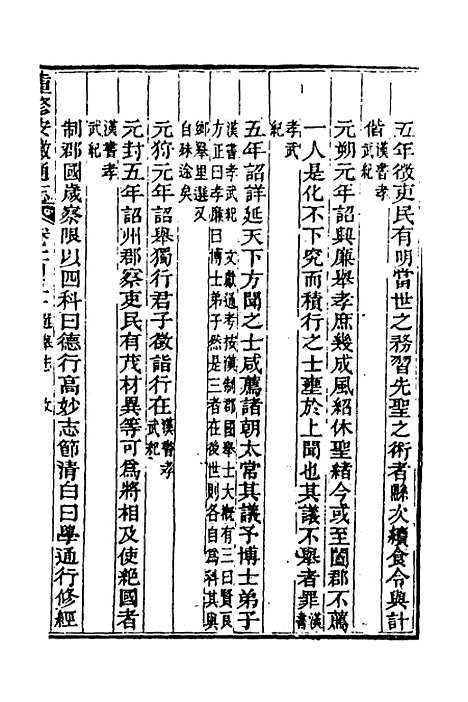 五年徵吏民有明當世之務習先聖之術者縣次續食令與計
偕漢書孝武紀
元朔元年詔興廉舉孝庶幾成風紹休聖緒今或至闔郡不薦
一人是化不下究而積行之士壅於上聞也其議不舉者罪漢書
孝武紀
五年詔詳延天下方聞之士咸薦諸朝太常其議予博士弟子
漢書孝武紀 文獻通考按漢制郡國舉士大概有三曰賢良
方正曰孝廉曰博士弟子然是三者在後世則各自為科其與
鄉舉里選又
自殊途矣
元狩元年詔舉獨行君子徵詣行在漢書孝武紀
元封五年詔州郡察吏民有茂材異等可為將相及使絕國者
漢書孝武紀
制郡國歲察限以四科曰德行高妙志節清白曰學通行修經
重修安徽通志